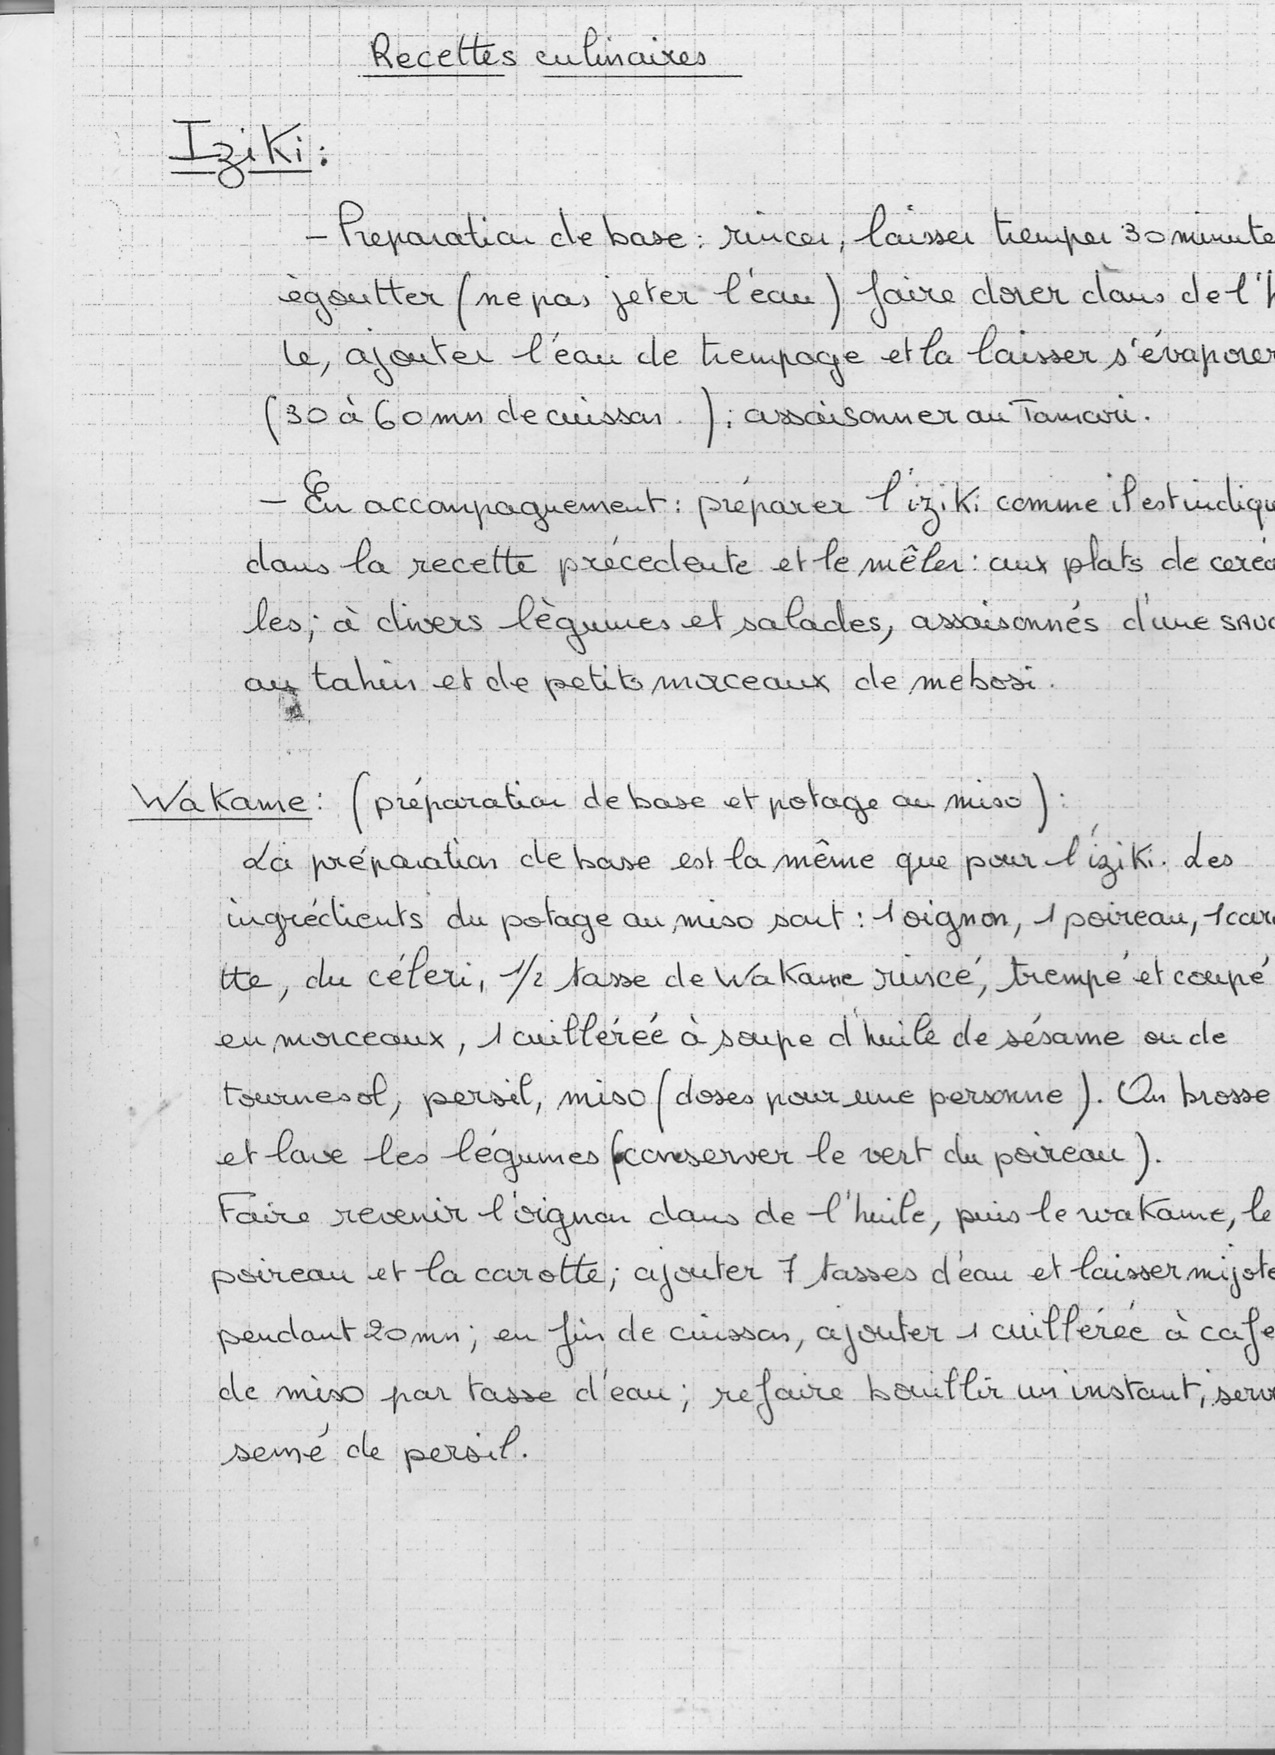 Recettes culinaires
Iziki:
- Preparation de base : rincer, laisser tremper 30 minute
égoutter (ne pas jeter l'eau) faire dorer dans de l'h
le, ajouter l'eau de trempage et la laisser s'évaporer
(30 à 60 mn de cuisson ) ; assaisonner au Tamari.
- En accompagnement : préparer l'iziki comme il est indiqu
dans la recette précedente et le mêler : aux plats de ceréa
les; à divers lègumes et salades, assaisonnés d'une sauc
au tahin et de petits morceaux de mebosi.
Wakame : (préparation de base et potage au miso) :
La préparation de base est la même que pour l'iziki. Les
ingrédients du potage au miso sont : 1 oignon, 1 poireau, 1 caro
tte, du céleri, 1/2 tasse de Wakame rincé, trempé et coupé
en morceaux, 1 cuilléréé à soupe d'huile de sésame ou de
tournesol, persil, miso (doses pour une personne). On brosse
et lave les légumes (conserver le vert du poireau).
Faire revenir l'oignon dans de l'huile, puis le wakame, le
poireau et la carotte; ajouter 7 tasses d'eau et laisser mijote
pendant 20 mn; en fin de cuisson, ajouter 1 cuilléréé à cafe
de miso par tasse d'eau; refaire bouillir un instant, serv
semé de persil.